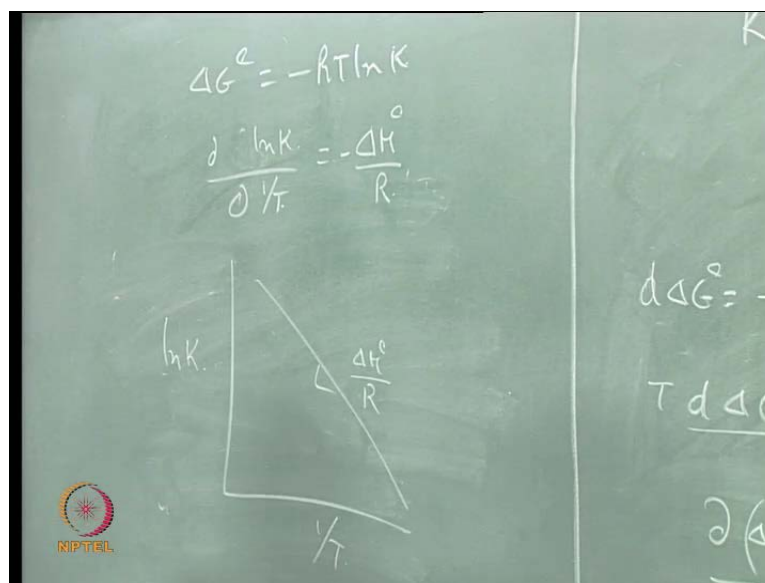 ΔG° = -RT ln K
∂ ln K / ∂ 1/T = - ΔH° / R
ln K
ΔH° / R
1/T
K
dΔG° = -
T d Δ
∂(Δ
NPTEL